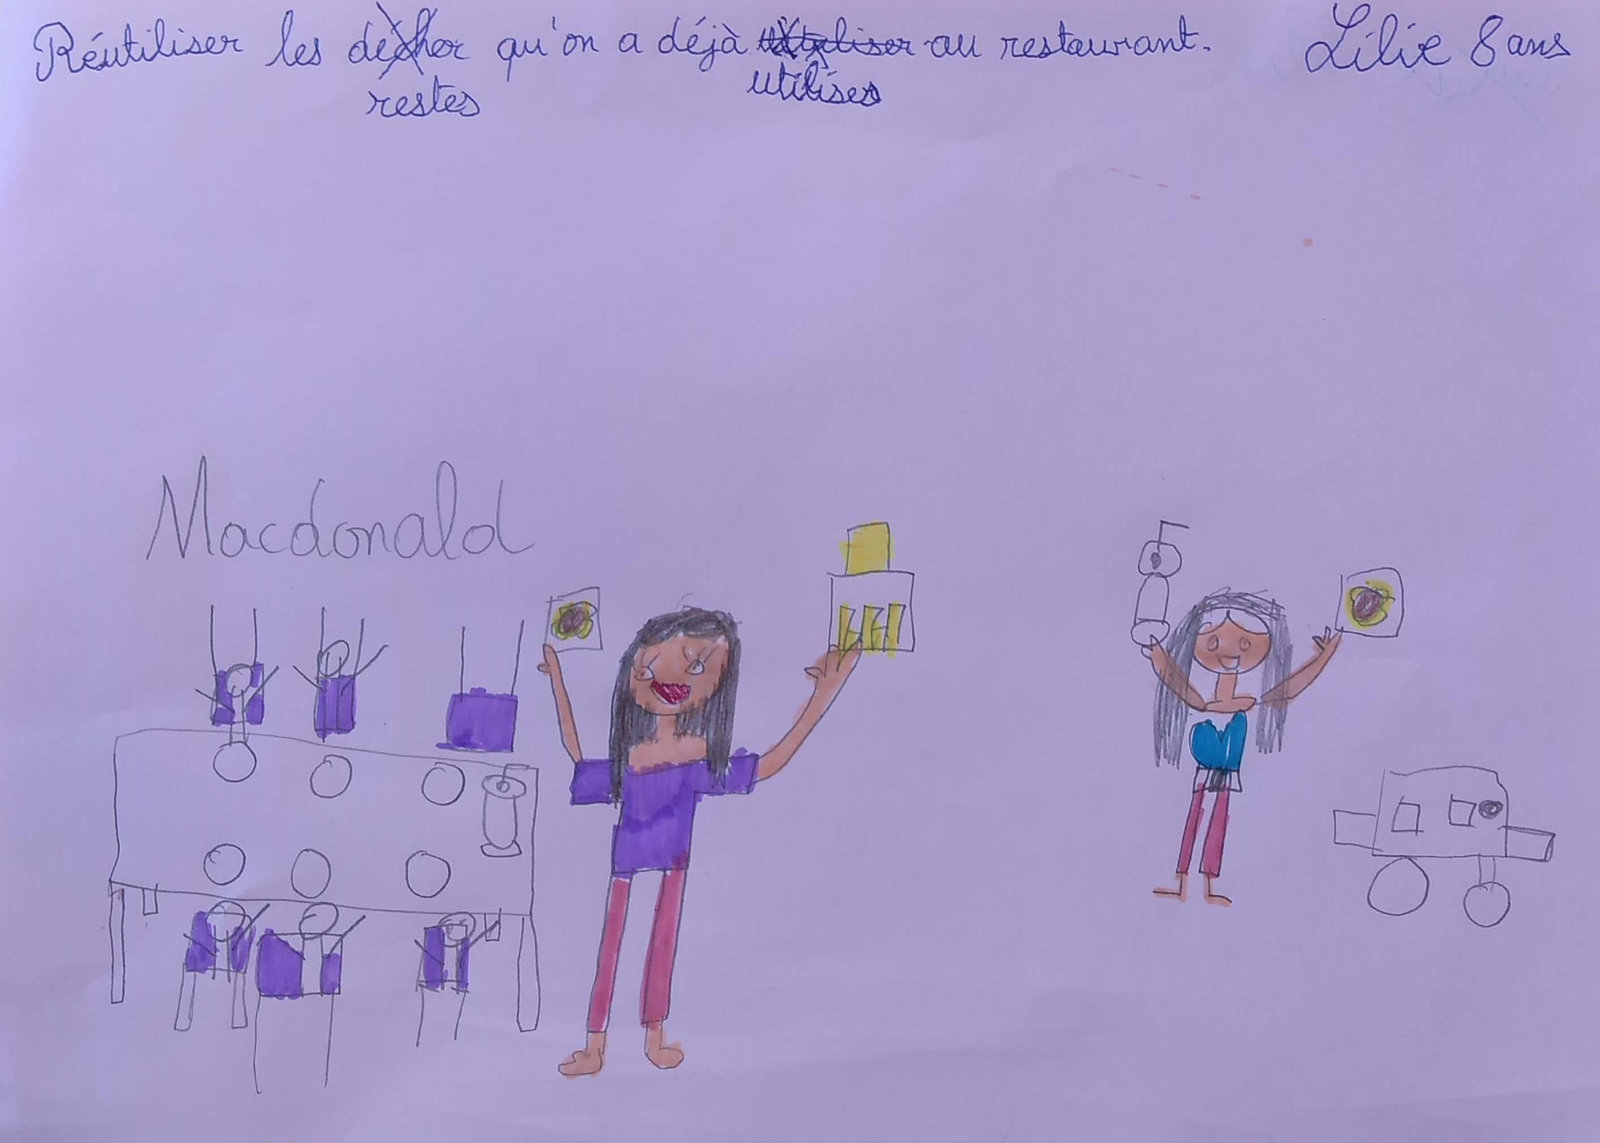 Réutiliser les decher qu'on a déjà au restaurant. Lilie 8 ans
restes utilises
Macdonald